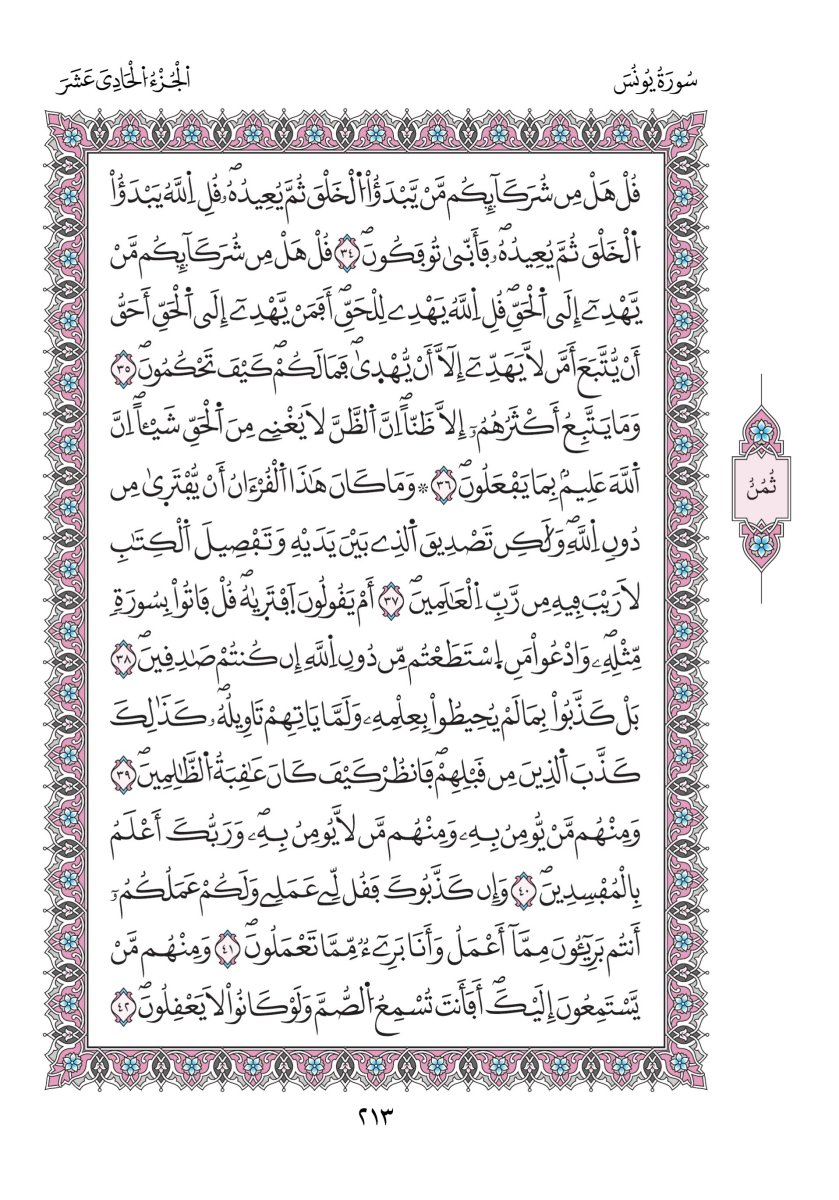 سُورَةُ يُونُسَ
اَلْجُزْءُ اَلْحَادِىَ عَشَرَ
قُلْ هَلْ مِن شُرَكَآئِكُم مَّنْ يَّبْدَؤُاْ اُ۬لْخَلْقَ ثُمَّ يُعِيدُهُۥۖ قُلِ اِ۬للَّهُ يَبْدَؤُاْ
اُ۬لْخَلْقَ ثُمَّ يُعِيدُهُۥۖ فَأَنّ۪ىٰ تُوفَكُونَۖ ٣٤ قُلْ هَلْ مِن شُرَكَآئِكُم مَّنْ
يَّهْدِےٓ إِلَى اَ۬لْحَقِّۖ قُلِ اِ۬للَّهُ يَهْدِے لِلْحَقِّۖ أَفَمَنْ يَّهْدِےٓ إِلَى اَ۬لْحَقِّ أَحَقُّ
أَنْ يُّتَّبَعَ أَمَّن لَّا يَهَدِّےٓ إِلَّآ أَنْ يُّهْد۪ىٰۖ فَمَا لَكُمْۖ كَيْفَ تَحْكُمُونَۖ ٣٥
وَمَا يَتَّبِعُ أَكْثَرُهُمُۥٓ إِلَّا ظَنّاًۖ اِنَّ اَ۬لظَّنَّ لَا يُغْنِے مِنَ اَ۬لْحَقِّ شَيْـٔاًۖ اِنَّ
اَ۬للَّهَ عَلِيمُۢ بِمَا يَفْعَلُونَۖ ٣٦ ۞ وَمَا كَانَ هَٰذَا اَ۬لْقُرْءَانُ أَنْ يُّفْتَر۪ىٰ مِن
دُونِ اِ۬للَّهِۖ وَلَٰكِن تَصْدِيقَ اَ۬لذِے بَيْنَ يَدَيْهِ وَتَفْصِيلَ اَ۬لْكِتَٰبِ
لَا رَيْبَ فِيهِ مِن رَّبِّ اِ۬لْعَٰلَمِينَۖ ٣٧ أَمْ يَقُولُونَ اَ۪فْتَر۪يٰهُۖ قُلْ فَاتُواْ بِسُورَةٖ
مِّثْلِهِۦۖ وَادْعُواْ مَنِ اِ۪سْتَطَعْتُم مِّن دُونِ اِ۬للَّهِ إِن كُنتُمْ صَٰدِقِينَۖ ٣٨
بَلْ كَذَّبُواْ بِمَا لَمْ يُحِيطُواْ بِعِلْمِهِۦ وَلَمَّا يَاتِهِمْ تَاوِيلُهُۥۖ كَذَٰلِكَ
كَذَّبَ اَ۬لذِينَ مِن قَبْلِهِمْۖ فَانظُرْ كَيْفَ كَانَ عَٰقِبَةُ اُ۬لظَّٰلِمِينَۖ ٣٩
وَمِنْهُم مَّنْ يُّومِنُ بِهِۦ وَمِنْهُم مَّن لَّا يُومِنُ بِهِۦۖ وَرَبُّكَ أَعْلَمُ
بِالْمُفْسِدِينَۖ ٤٠ وَإِن كَذَّبُوكَ فَقُل لِّے عَمَلِے وَلَكُمْ عَمَلُكُمُۥٓ
أَنتُم بَرِيٓـُٔونَ مِمَّآ أَعْمَلُ وَأَنَا بَرِےٓءٞ مِّمَّا تَعْمَلُونَۖ ٤١ وَمِنْهُم مَّنْ
يَّسْتَمِعُونَ إِلَيْكَۖ أَفَأَنتَ تُسْمِعُ اُ۬لصُّمَّ وَلَوْ كَانُواْ لَا يَعْقِلُونَۖ ٤٢
ثُمُنُ
٢١٣